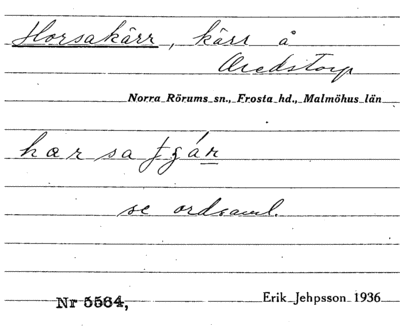 Horsakärr, kärr å
Aredstorp
Norra Rörums sn., Frosta hd., Malmöhus län
se ordsaml.
Nr 5564,
Erik Jehpsson 1936